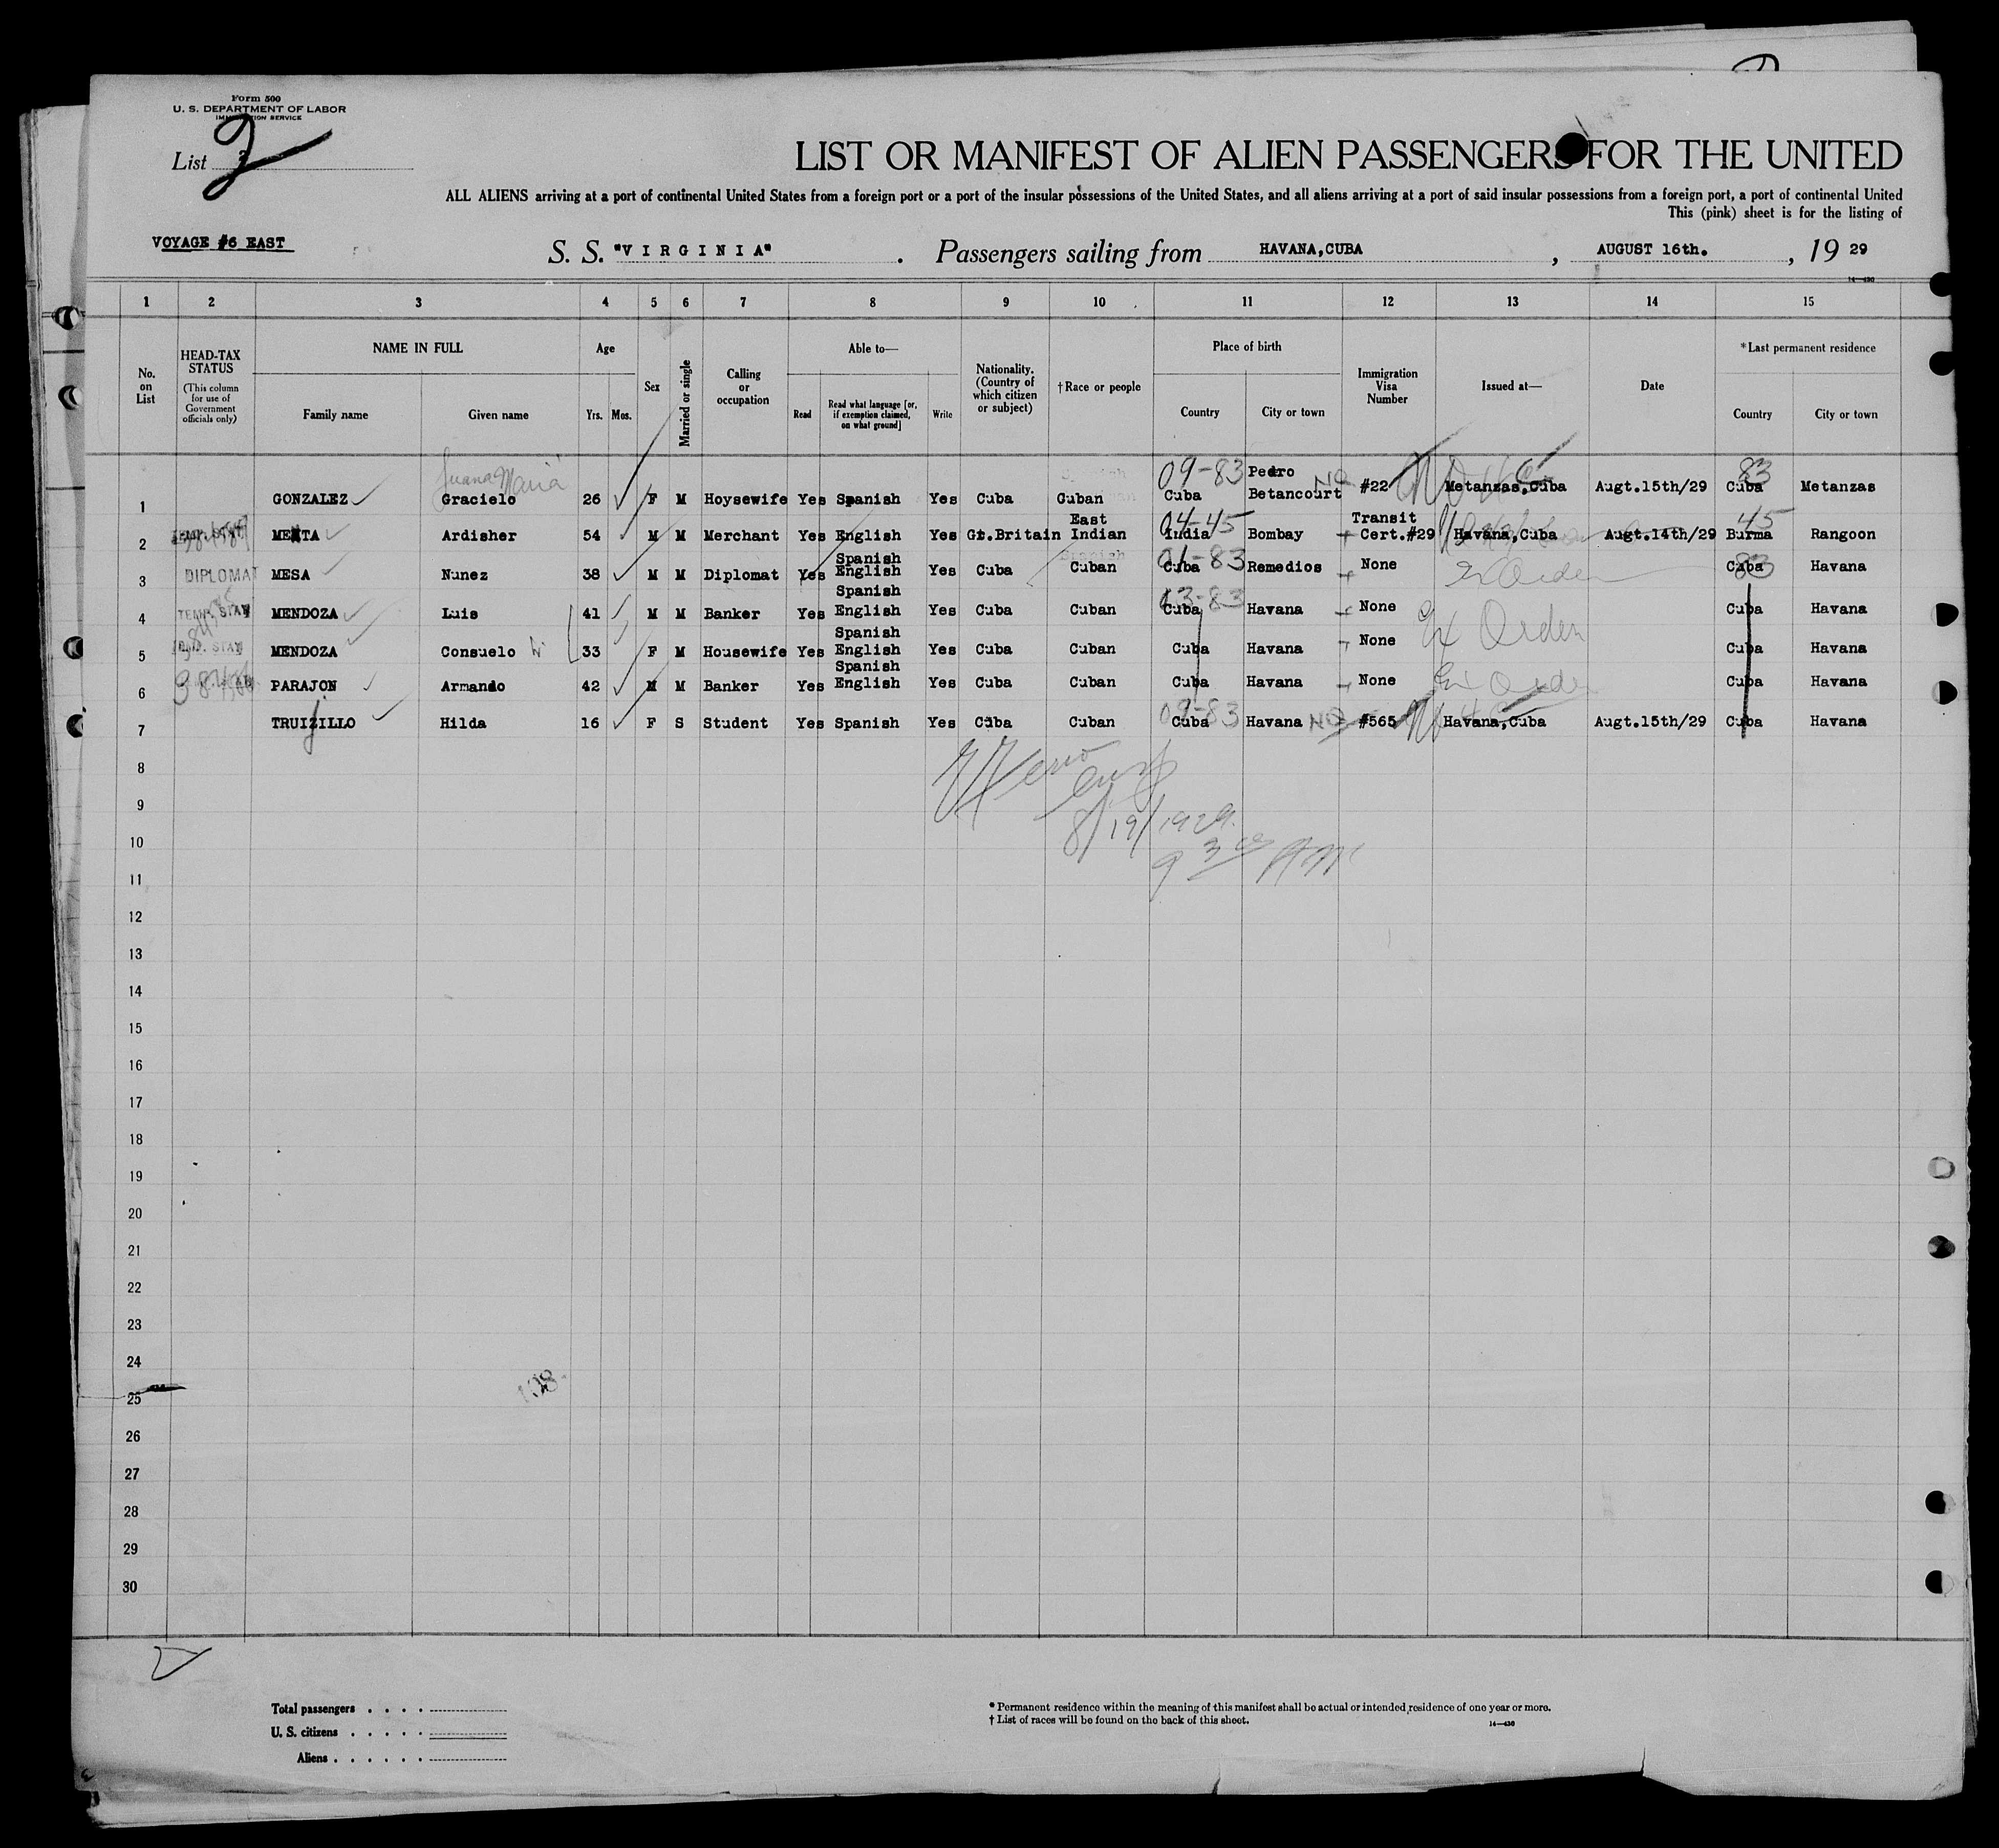 Form 500
U. S. DEPARTMENT OF LABOR
IMMIGRATION SERVICE
List 2
LIST OR MANIFEST OF ALIEN PASSENGERS FOR THE UNITED
ALL ALIENS arriving at a port of continental United States from a foreign port or a port of the insular possessions of the United States, and all aliens arriving at a port of said insular possessions from a foreign port, a port of continental United
This (pink) sheet is for the listing of
VOYAGE #6 EAST S. S. "VIRGINIA". Passengers sailing from HAVANA,CUBA, AUGUST 16th., 19 29
14—430
1 2 3 4 5 6 7 8 9 10 11 12 13 14 15
No. on List
HEAD-TAX STATUS
(This column for use of Government officials only)
NAME IN FULL
Family name Given name
Age
Yrs. Mos.
Sex
Married or single
Calling or occupation
Able to—
Read Read what language [or, if exemption claimed, on what ground] Write
Nationality. (Country of which citizen or subject)
†Race or people
Place of birth
Country City or town
Immigration Visa Number
Issued at—
Date
*Last permanent residence
Country City or town
Juana Maria 09-83 Pedro NQ 83
1 GONZALEZ Gracielo 26 F M Hoysewife Yes Spanish Yes Cuba Cuban Cuba Betancourt #22 Metanzas,Cuba Augt.15th/29 Cuba Metanzas
East 04-45 Transit 45
2 MEHTA Ardisher 54 M M Merchant Yes English Yes Gt.Britain Indian India Bombay Cert.#29 Havana,Cuba Augt.14th/29 Burma Rangoon
Spanish 01-83
3 DIPLOMAT MESA Nunez 38 M M Diplomat Yes English Yes Cuba Cuban Cuba Remedios None Ex Orden Cuba 83 Havana
Spanish 03-83
4 MENDOZA Luis 41 M M Banker Yes English Yes Cuba Cuban Cuba Havana None Ex Orden Cuba Havana
Spanish
5 MENDOZA Consuelo W 33 F M Housewife Yes English Yes Cuba Cuban Cuba Havana None Cuba Havana
Spanish
6 PARAJON Armando 42 M M Banker Yes English Yes Cuba Cuban Cuba Havana None Ex Orden Cuba Havana
7 TRUIZILLO j Hilda 16 F S Student Yes Spanish Yes Cuba Cuban Cuba 09-83 Havana NQ #565 Havana,Cuba Augt.15th/29 Cuba Havana
8
8/19/1929
9
9 30 AM
10
11
12
13
14
15
16
17
18
19
20
21
22
23
24
25
26
27
28
29
30
Total passengers
U. S. citizens
Aliens
* Permanent residence within the meaning of this manifest shall be actual or intended residence of one year or more.
† List of races will be found on the back of this sheet.
14—430